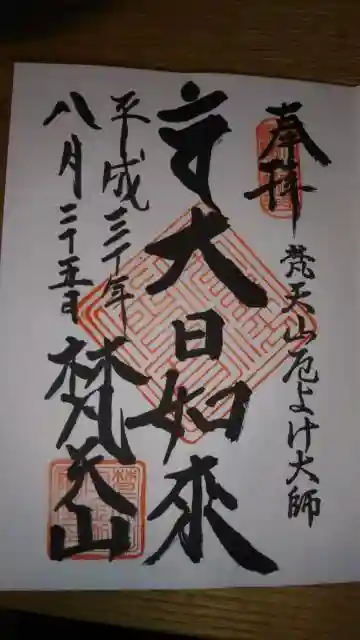 奉拝
梵天山厄よけ大師
大日如来
平成三十年
八月二十五日
梵天山